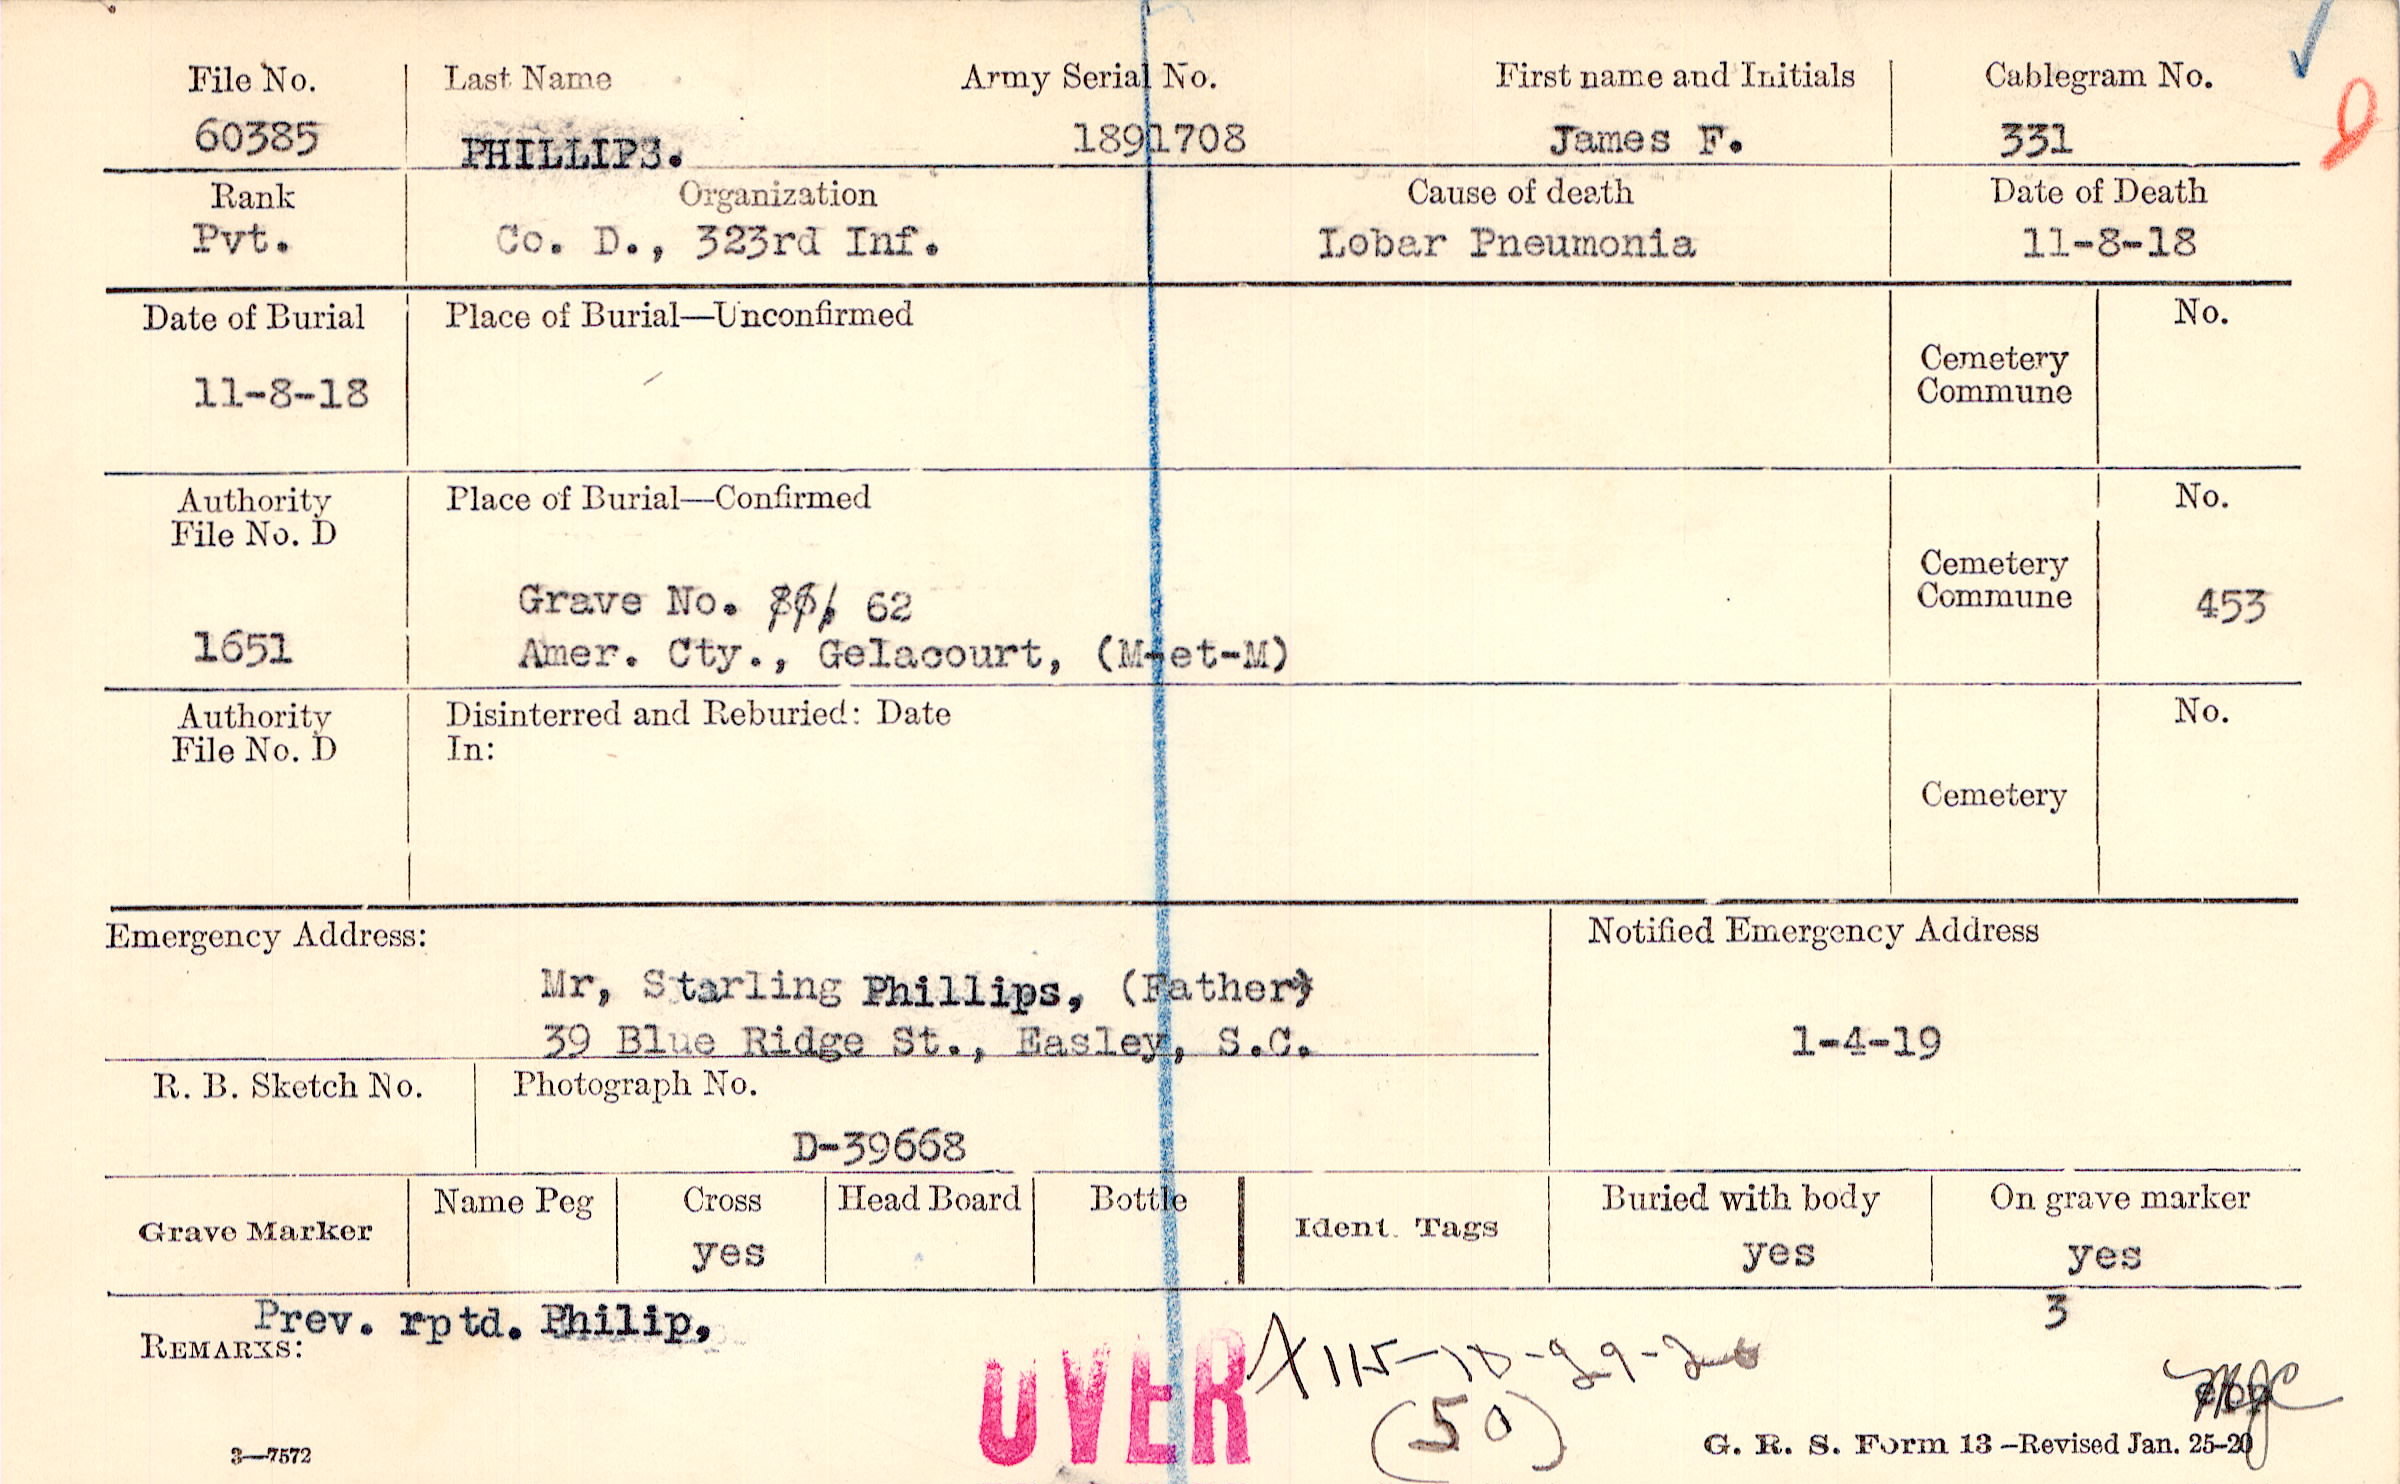 File No. Last Name Army Serial No. First name and Initials Cablegram No.
60385 PHILLIPS. 1891708 James F. 331
Rank Organization Cause of death Date of Death
Pvt. Co. D., 323rd Inf. Lobar Pneumonia 11-8-18
Date of Burial Place of Burial—Unconfirmed No.
Cemetery
Commune
11-8-18
Authority Place of Burial—Confirmed No.
File No. D
Cemetery
Commune 453
Grave No. 62
1651 Amer. Cty., Gelacourt, (M-et-M)
Authority Disinterred and Reburied: Date No.
File No. D In:
Cemetery
Emergency Address: Notified Emergency Address
Mr, Starling Phillips, (Father)
39 Blue Ridge St., Easley, S.C. 1-4-19
R. B. Sketch No. Photograph No.
D-39668
Grave Marker Name Peg Cross Head Board Bottle Ident. Tags Buried with body On grave marker
yes yes yes
3
Prev. rptd. Philip,
REMARKS:
OVER
(50)
3—7572 G. R. S. Form 13—Revised Jan. 25-20